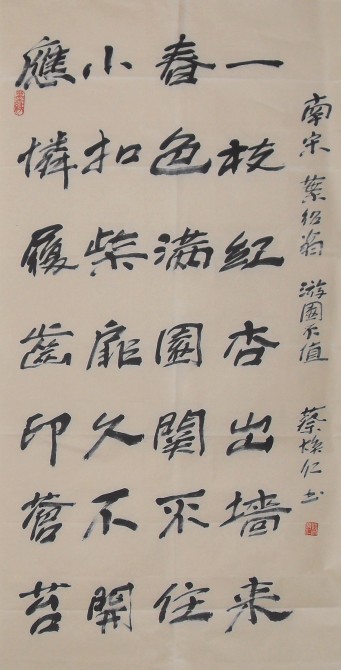 應憐履齒印蒼苔
小扣柴扉久不開
春色满園關不住
一枝红杏出墙来
南宋 葉紹翁 游園不值 蔡焕仁书